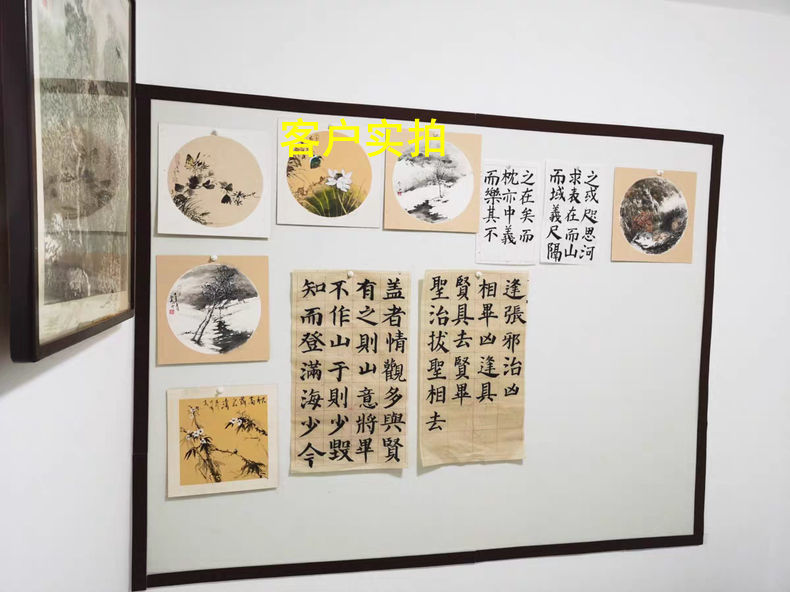 客户实拍
之戎咫思河
求表在而山
而域義尺隔
之在矣而
枕亦中義
而樂其不
逢張邪治凶
相畢凶逢具
賢具去賢畢
聖治拔聖相去
盖者情觀多與賢
有之則山意將畢
不作山于則少毀
知而登滿海少今